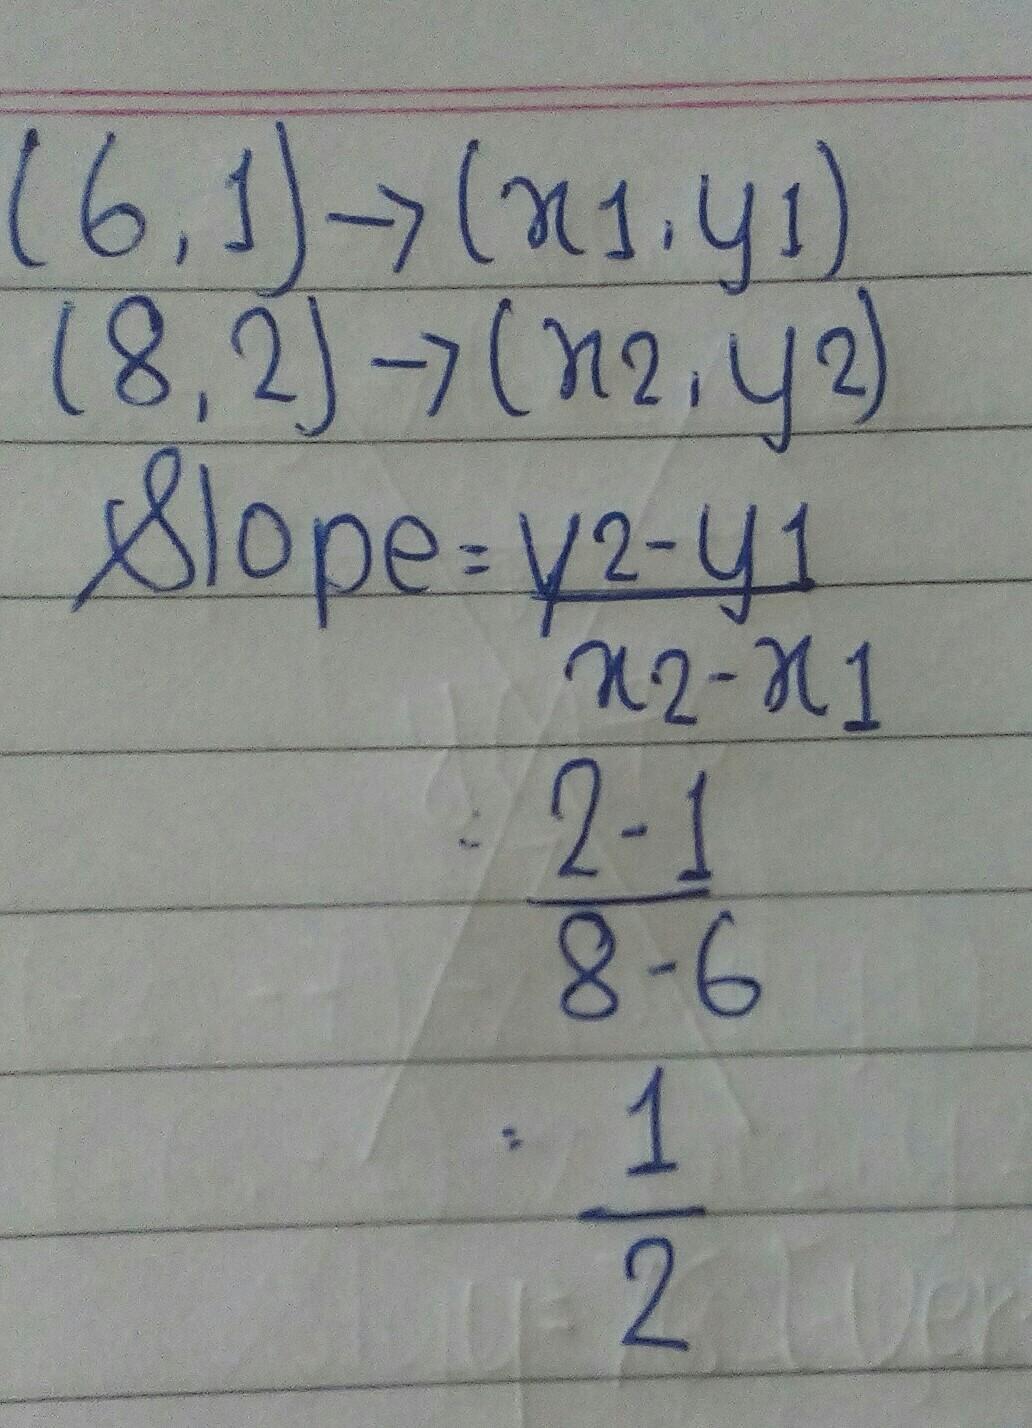 (6,1)→(x1,y1)
(8,2)→(x2,y2)
Slope = y2-y1
x2-x1
= 2-1
8-6
= 1
2